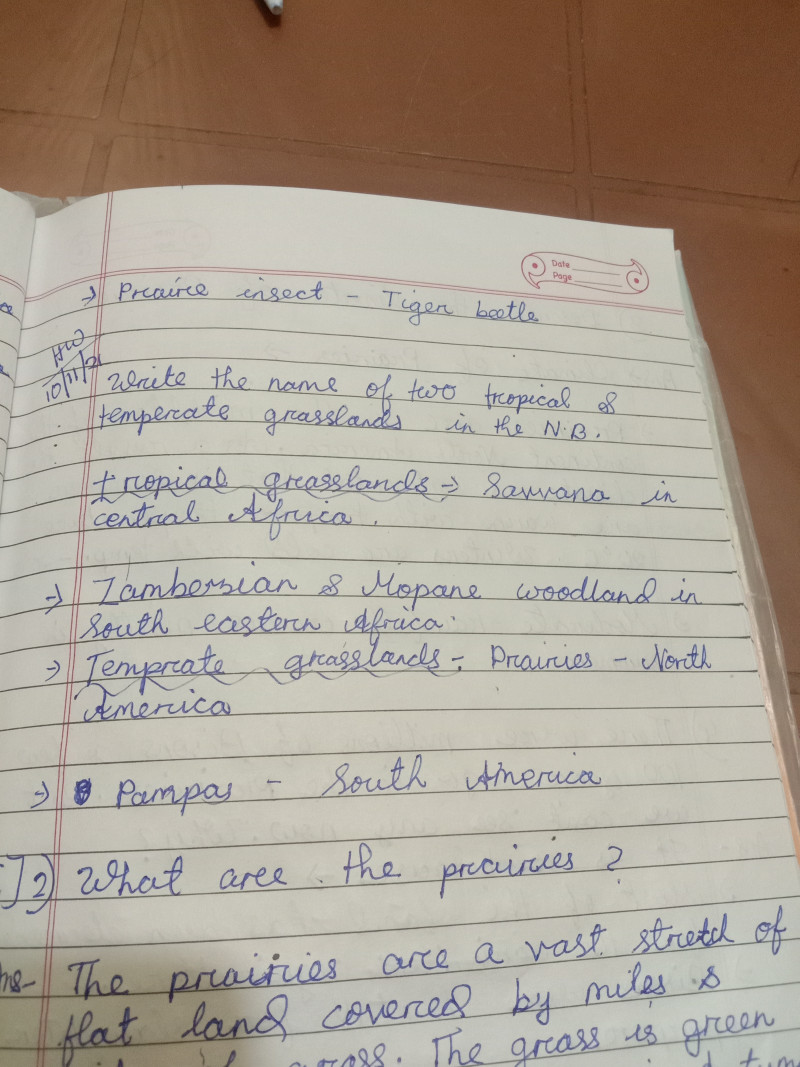 Date
Page
→ Prairie insect - Tiger beetle
HW
10/11/21
Write the name of two tropical &
temperate grasslands in the N.B.
tropical grasslands → Savvana in
central Africa.
→ Zambersian & Mopane woodland in
South eastern Africa.
→ Temprate grasslands - Prairies - North
America
→ Pampas - South America
2) What are the prairies ?
The prairies are a vast stretch of
flat land covered by miles &
grass. The grass is green